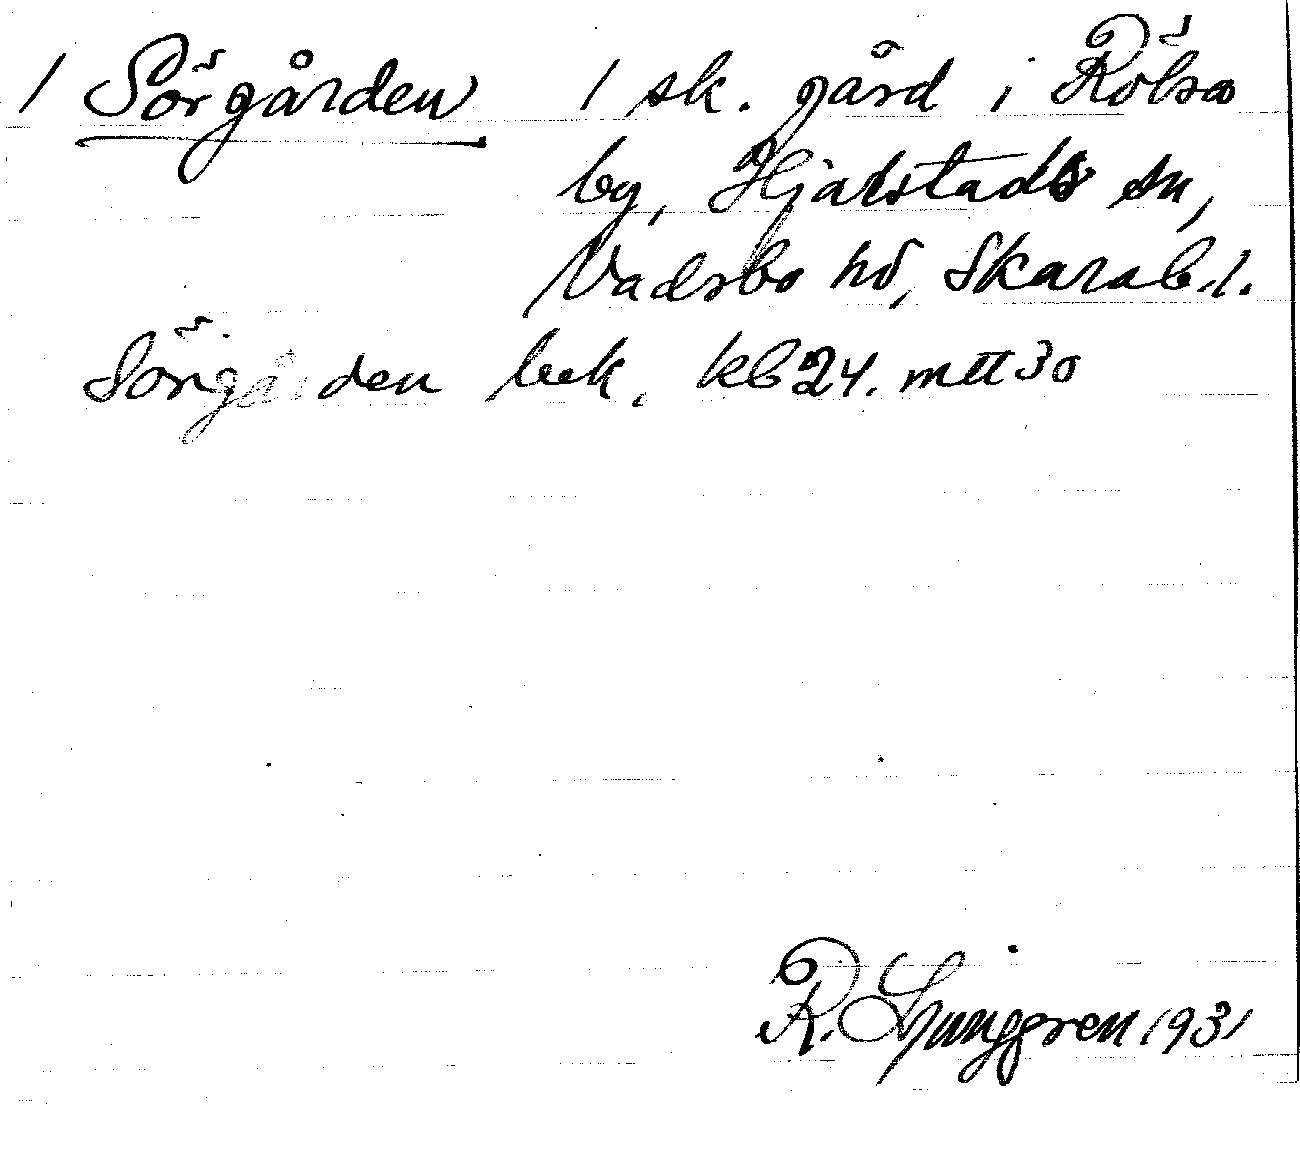 1 Sörgården 1 sk. gård i Rölsa
by, Hjälstads sn,
Vadsbo hd, Skarab. l.
Sörgården bek. kb 24. mtt 30
R. Ljunggren 1931